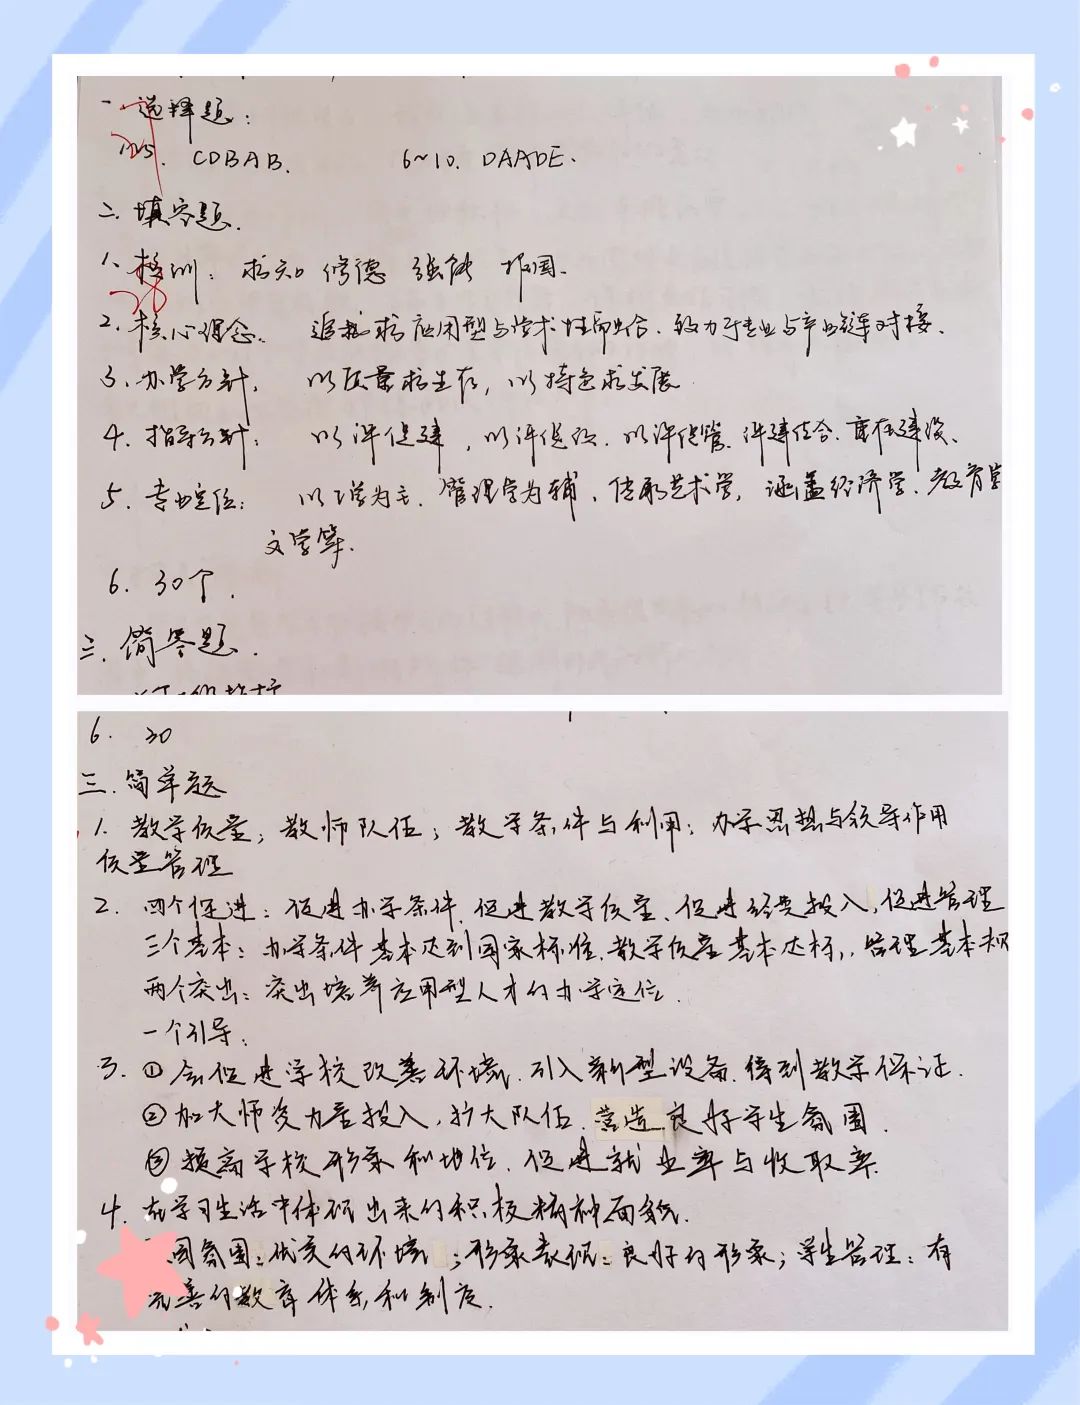 一、选择题：
1~5. CDBAB. 6~10. DAADE.
二、填空题.
1、校训：求知 修德 强能 报国.
2、核心理念. 追求应用型与学术性而结合、致力于专业与产业链对接.
3、办学方针. 以质量求生存，以特色求发展
4、指导方针： 以评促建，以评促改、以评促管、评建结合、重在建设、
5、专业定位： 以工学为主、管理学为辅、传承艺术学，涵盖经济学、教育学
文学等.
6. 30个.
三、简答题.
6. 30
三.简单题
1. 教学质量；教师队伍；教学条件与利用；办学思想与领导作用
质量管理
2. 四个促进：促进办学条件、促进教学质量、促进经费投入、促进管理
三个基本：办学条件基本达到国家标准、教学质量基本达标、管理基本规
两个突出：突出培养应用型人才的办学定位.
一个引导：
3. ①会促进学校改善环境、引入新型设备、得到教学保证.
②加大师资力量投入，扩大队伍、营造良好学生氛围.
③提高学校形象和地位、促进就业率与收取率
4. 在学习生活中体现出来的积极精神面貌.
园氛围：优美的环境；形象表现：良好的形象；学生管理：有
完善的教育体系和制度.